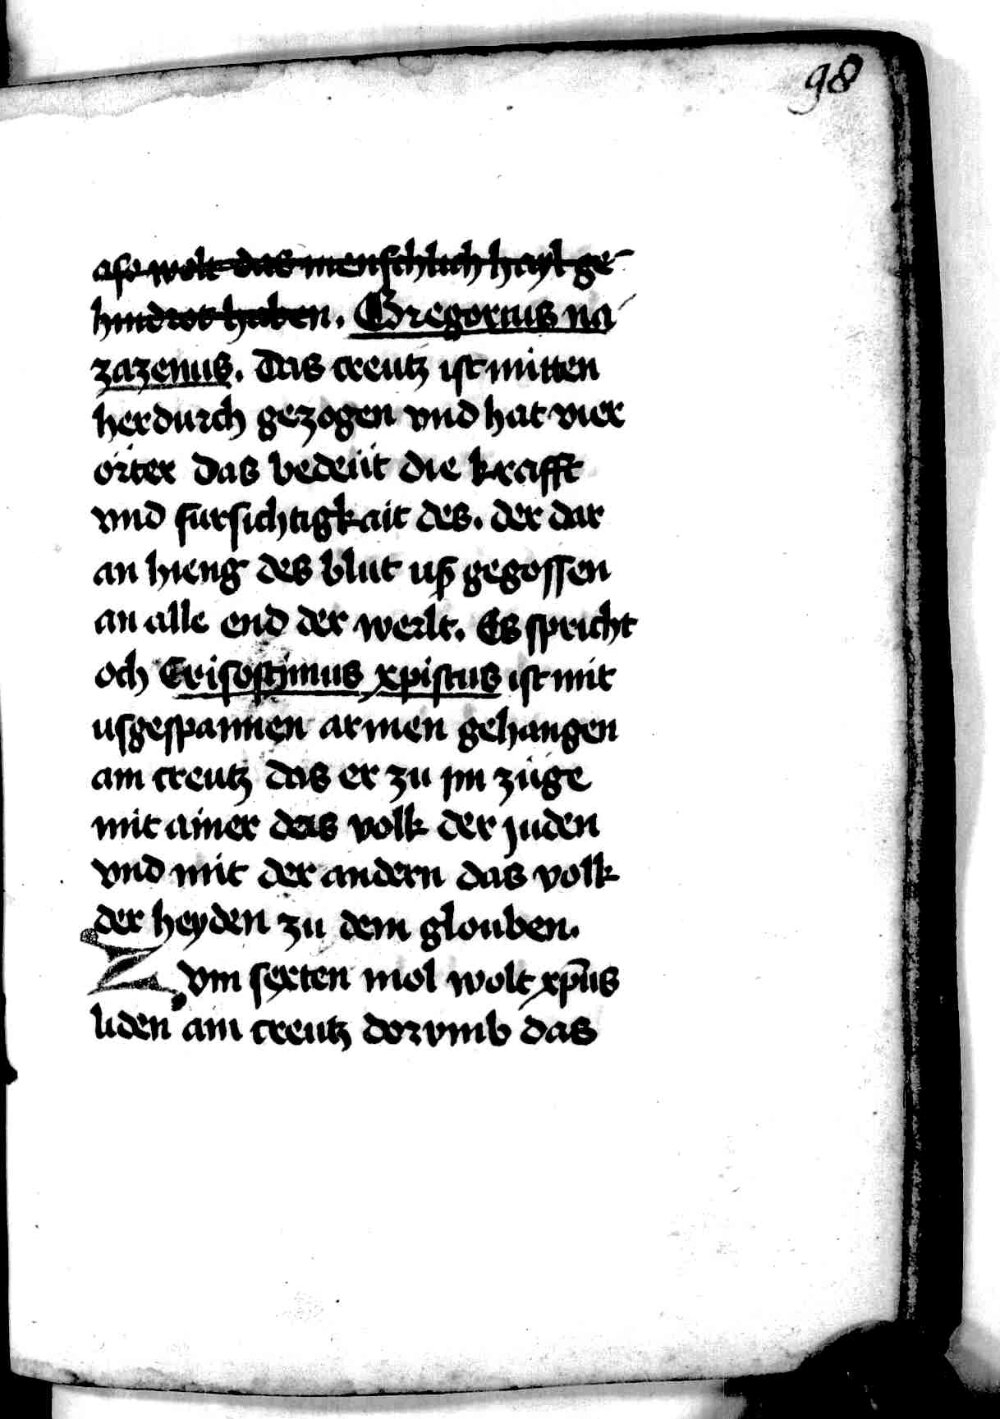 98
aso wolt das menschlich hayl ge-
hindrot haben. Gregorius na
zazenus. Das creutz ist mitten
herdurch gezogen vnd hat vier
örter das bedeüt die krafft
vnd fürsichtigkait des. der dar
an hieng des blut uß gegossen
an alle end der werlt. Es spricht
och Crisostimus xpistus ist mit
usgespannen armen gehangen
am creutz das er zu jm züge
mit ainer das volk der juden
vnd mit der andern das volk
der heyden zu dem glouben.
Zvm sexten mol wolt xp̄us
liden am creutz dorvmb das